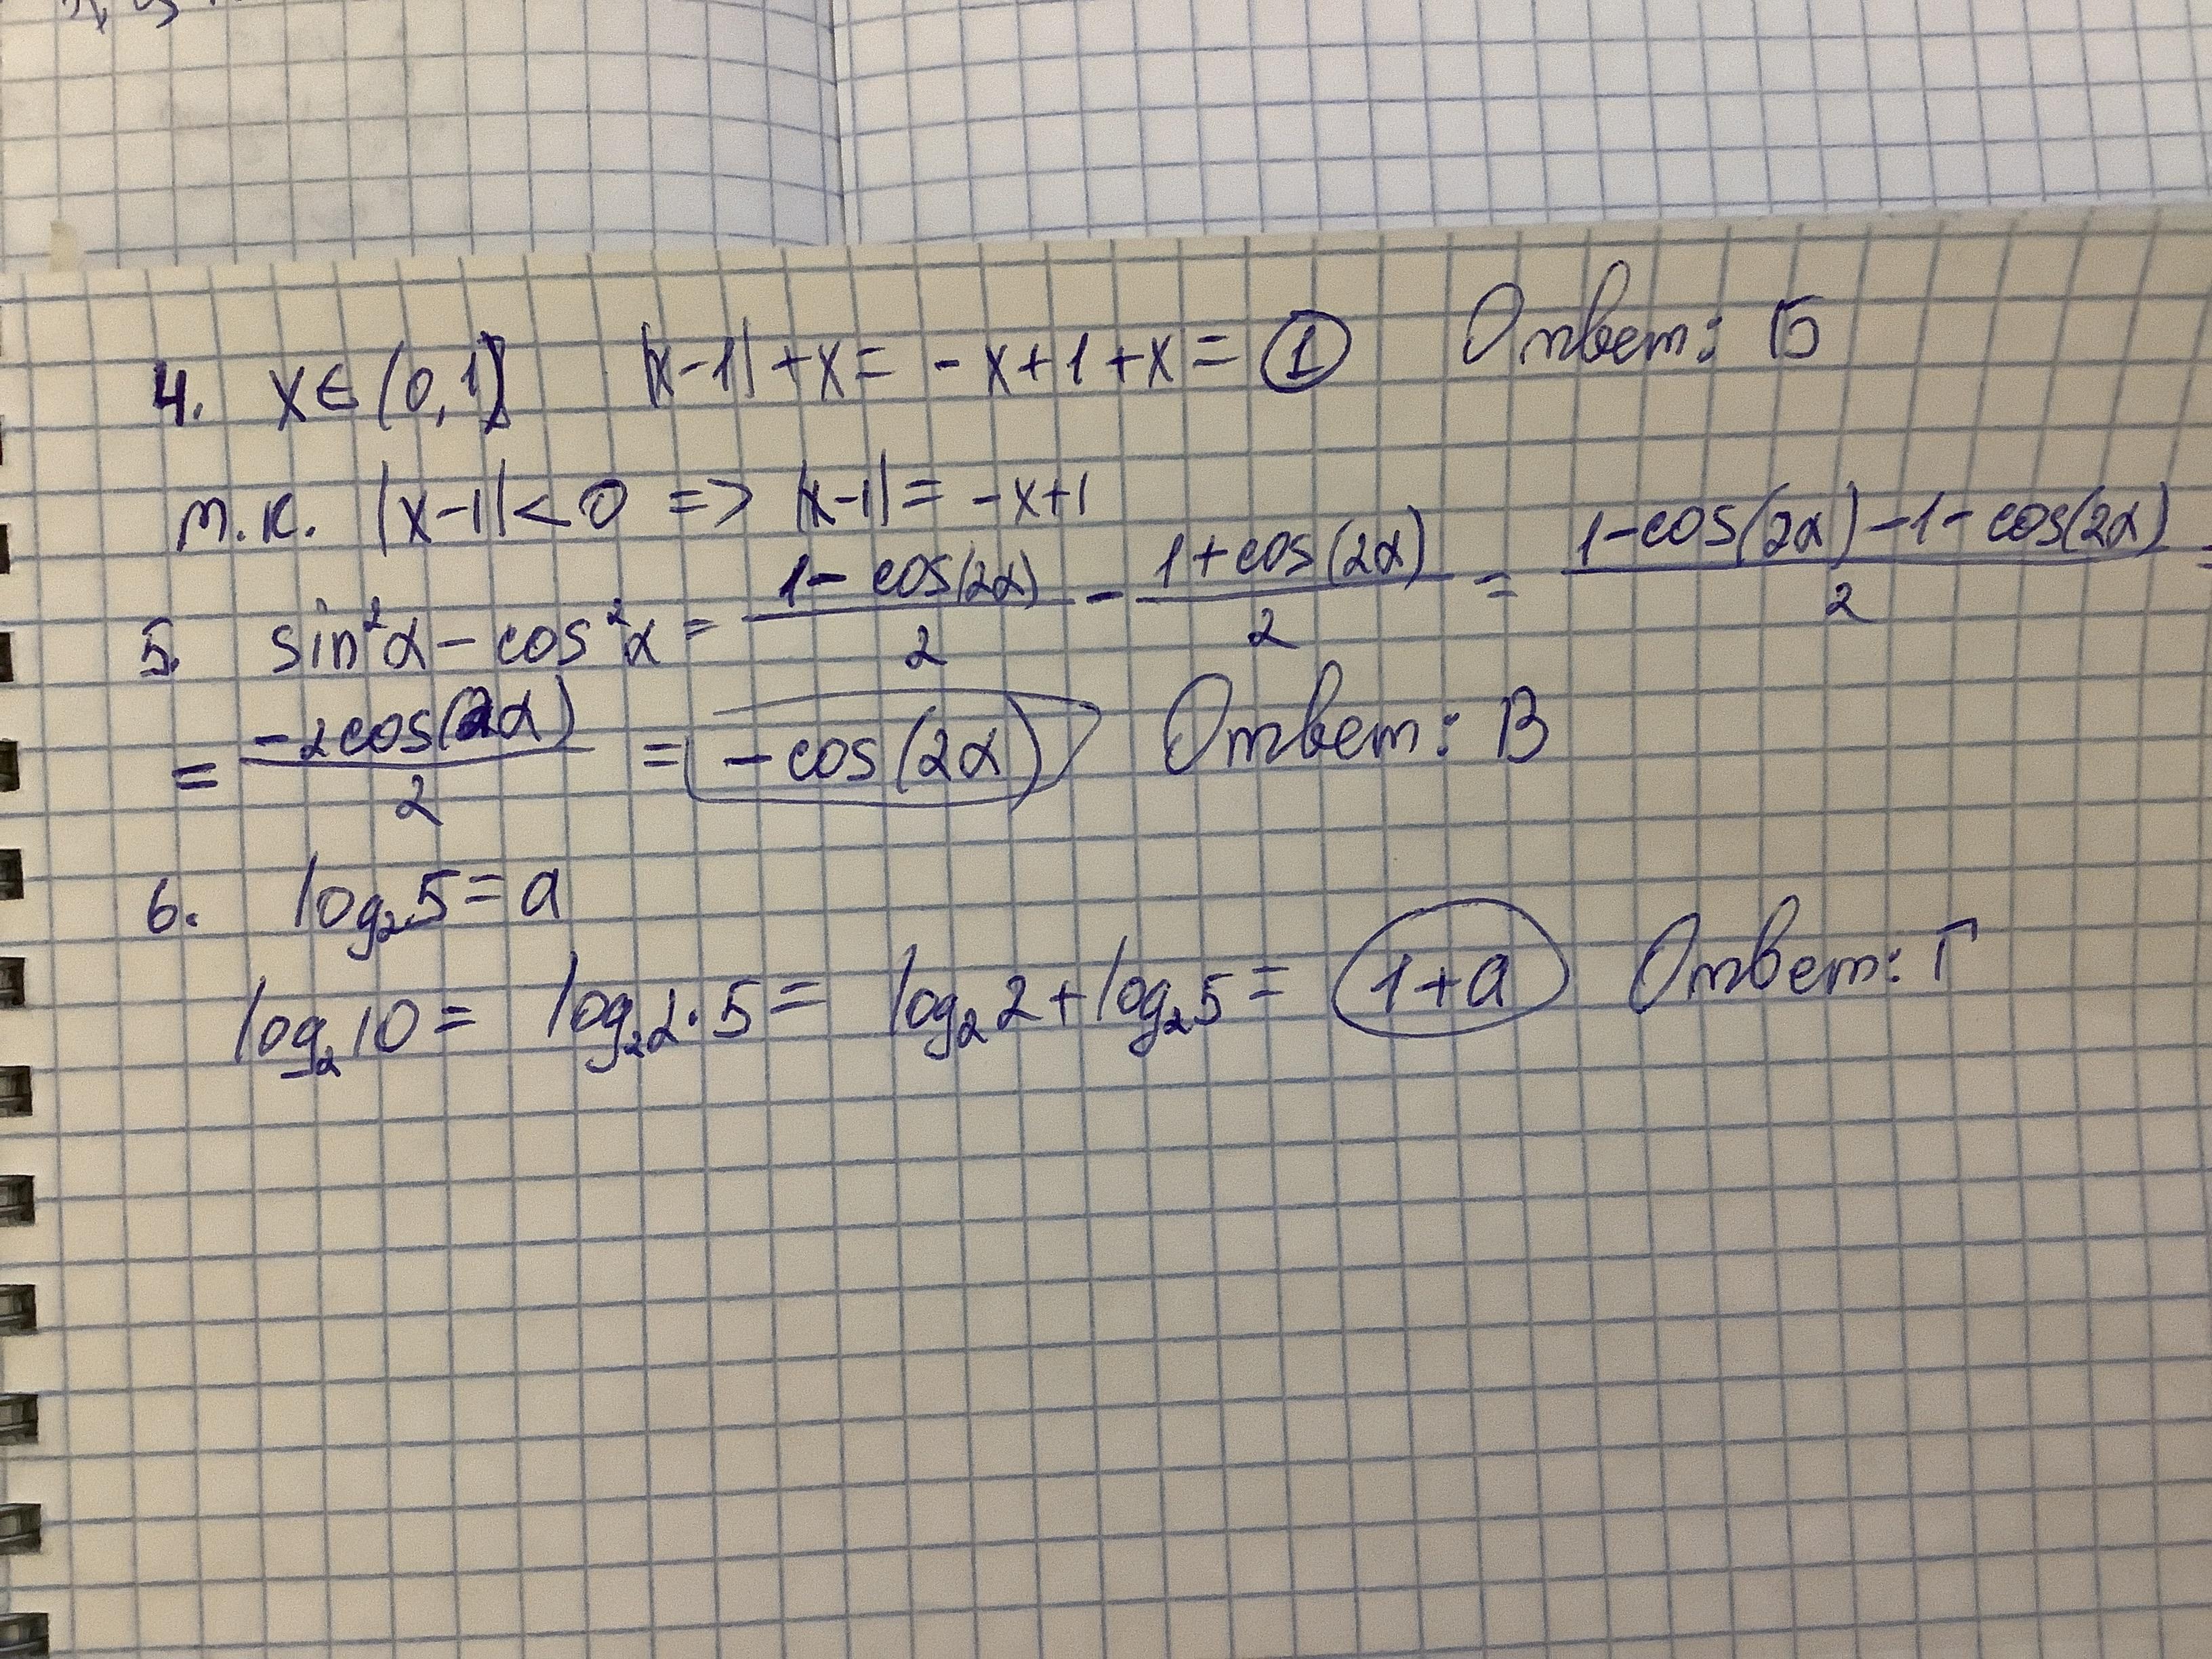 4. x∈(0,1] |x-1|+x= -x+1+x= 1 Ответ: Б
т.к. |x-1|<0 => |x-1|= -x+1
5. sin²α-cos²α= (1-cos(2α))/2 - (1+cos(2α))/2 = (1-cos(2α)-1-cos(2α))/2 =
= (-2cos(2α))/2 = -cos(2α) Ответ: В
6. log₂5=a
log₂10= log₂2·5= log₂2+log₂5= 1+a Ответ: Г